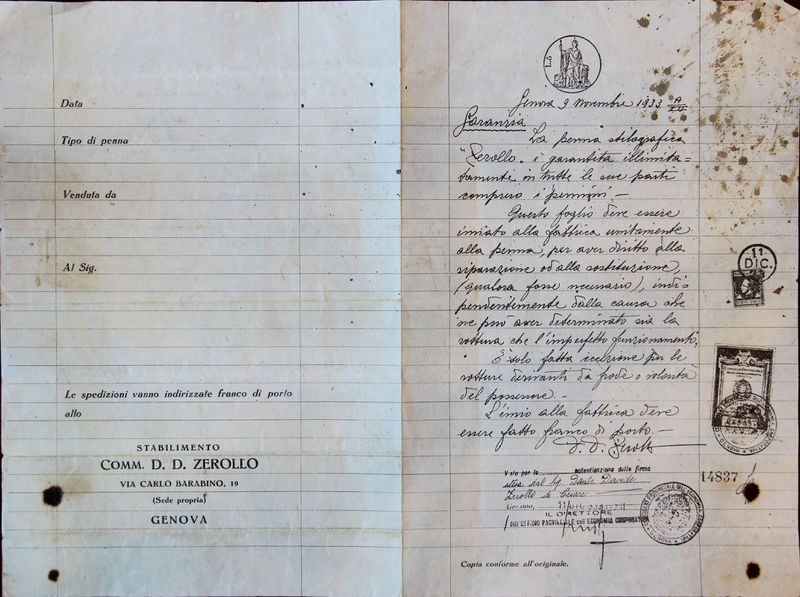 Data
Tipo di penna
Venduta da
Al Sig.
Le spedizioni vanno indirizzate franco di porto
allo
STABILIMENTO
COMM. D. D. ZEROLLO
VIA CARLO BARABINO, 19
(Sede propria)
GENOVA
L.5
Genova 9 Novembre 1933 A/XII
Garanzia
La penna stilografica
"Zerollo" è garantita illimita=
tamente in tutte le sue parti
compreso i pennini. —
Questo foglio deve essere
inviato alla fabbrica unitamente
alla penna, per aver diritto alla
riparazione od alla sostituzione,
(qualora fosse necessario), indi=
pendentemente dalla causa che
ne può aver determinato sia la
rottura che l'imperfetto funzionamento.
È solo fatta eccezione per le
rotture derivanti da frode o volontà
del possessore. —
L'invio alla fabbrica deve
essere fatto franco di porto. —
D. D. Zerollo
11
DIC.
Visto per la autenticazione della firma
del Sig. Dante Davide
Zerollo di Cesare
Genova, 11
IL DIRETTORE
dell'UFFICIO PROVINCIALE dell'ECONOMIA CORPORATIVA
14837
Copia conforme all'originale.